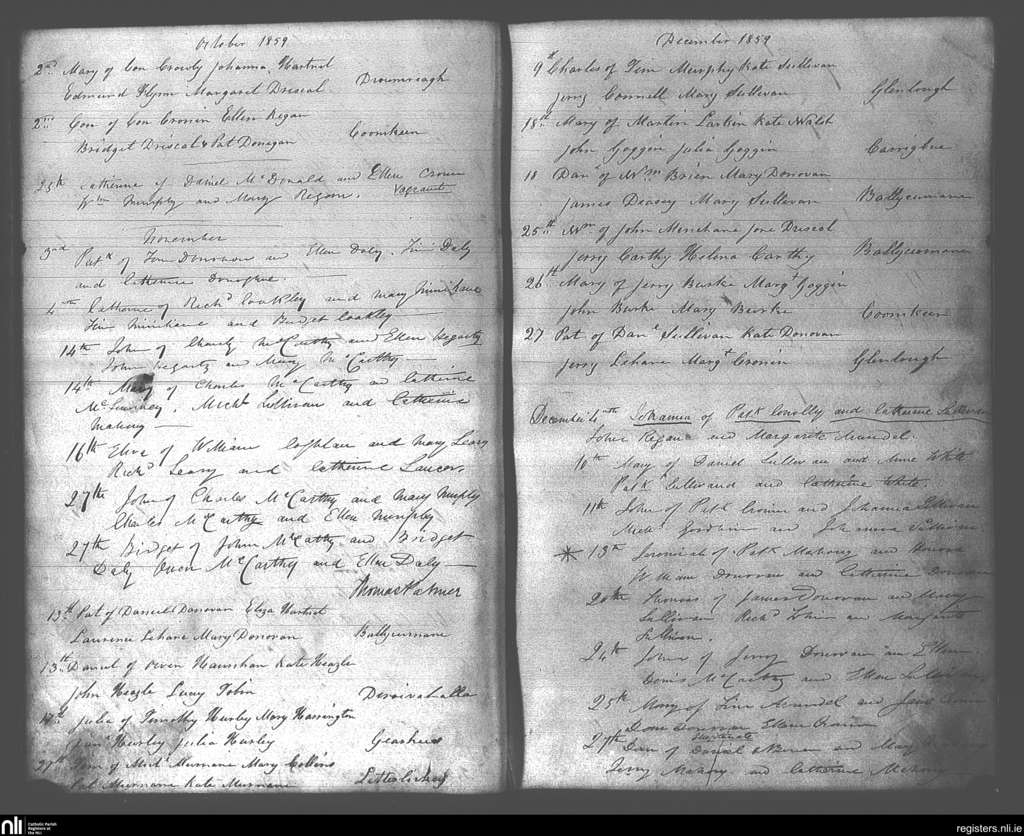 October 1859
2nd Mary of Con Crowly Johanna Hartnet
Edmund Flynn Margaret Driscol Droumreagh
2nd Con of Con Cronin Ellen Regan
Bridget Driscol & Pat Donegan Coomkeen
25th Catherine of Daniel McDonald and Ellen Cronin
Wm Murphy and Mary Regan. Vagrants
November
3rd Patk of Tim Donovan and Ellen Daly. Tim Daly
and Catherine Donoghue.
4th Catherine of Richd Coakley and Mary Minihane
Tim Minihane and Bridget Coakley
14th John of Charly McCarthy and Ellen Hegarty
John Hegarty and Mary McCarthy
14th Mary of Charles McCarthy and Catherine
Michl Sullivan and Catherine
Mahony
16th Eliza of William Coghlan and Mary Leary
Richd Leary and Catherine
27th John of Charles McCarthy and Mary Murphy
Charles McCarthy and Ellen Murphy
27th Bridget of John McCarthy and Bridget
Daly Owen McCarthy and Ellen Daly
Thomas Palmer
13th Pat of Daniel Donovan Eliza Hartnet
Laurence Lehane Mary Donovan Ballycumane
13th Daniel of Owen Kate Heagle
John Heagle Lucy Tobin
Julia of Timothy Hurley Mary Harrington
Hurley Julia Hurley
27th of Michl Murnane Mary Collins
Patk Murnane Kate Murnane
December 1859
9th Charles of Tim Murphy Kate Sullivan
Jerry Connell Mary Sullivan Glenlough
18th Mary of Martin Larkin Kate Walsh
John Goggin Julia Goggin Carrigbue
18 Danl of Wm Brien Mary Donovan
James Deasey Mary Sullivan Ballycumane
25th Wm of John Minehane Jone Driscol
Jerry Carthy Helena Carthy Ballycumane
26th Mary of Jerry Burke Margt Goggin
John Burke Mary Burke Coomkeen
27 Pat of Danl Sullivan Kate Donovan
Jerry Lehane Margt Cronin Glenlough
December 6th Johanna of Patk Conolly and Catherine Sullivan
John Regan and Margarete Arundel.
10th Mary of Daniel Sullivan and Anne White
Patk Sullivan and Catherine White.
11th John of Patk Cronin and Johanna Sullivan
Michl and Johanna Sullivan
* 13th Jeremiah of Patk Mahony and Honora
William Donovan and Catherine Donovan
20th Thomas of James Donovan and Mary
Sullivan Richd White and Margarete
Sullivan.
24th John of Jerry Donovan and Ellen
Denis McCarthy and Ellen Sullivan
25th Mary of Tim Arundel and Jane
Donovan Ellen Cronin
27th Dan of Daniel and Mary
Jerry Mahony and Catherine Mahony
nli Catholic Parish
Registers at
the NLI
registers.nli.ie